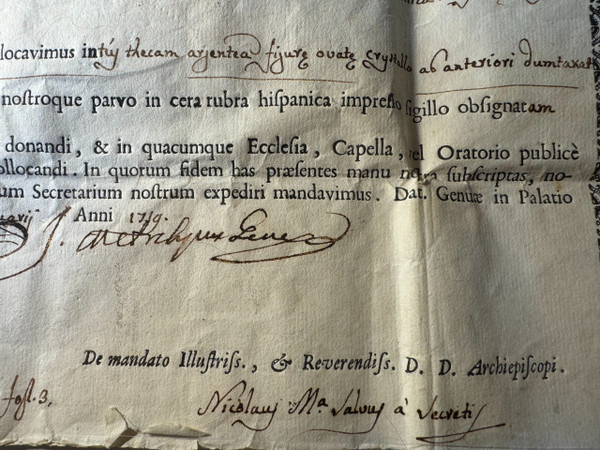 locavimus intus thecam argenteam figurę ovatę crystallo ab anteriori dumtaxat
noſtroque parvo in cera rubra hiſpanica impreſſo ſigillo obſignatam
donandi, & in quacumque Eccleſia, Capella, vel Oratorio publicè
ollocandi. In quorum fidem has præſentes manu noſtra ſubſcriptas, no-
um Secretarium noſtrum expediri mandavimus. Dat. Genuæ in Palatio
Anni 1719.
De mandato Illuſtriſs., & Reverendiſs. D. D. Archiepiſcopi.
fol. 3.
Nicolaus Mª Salvus à Secretis